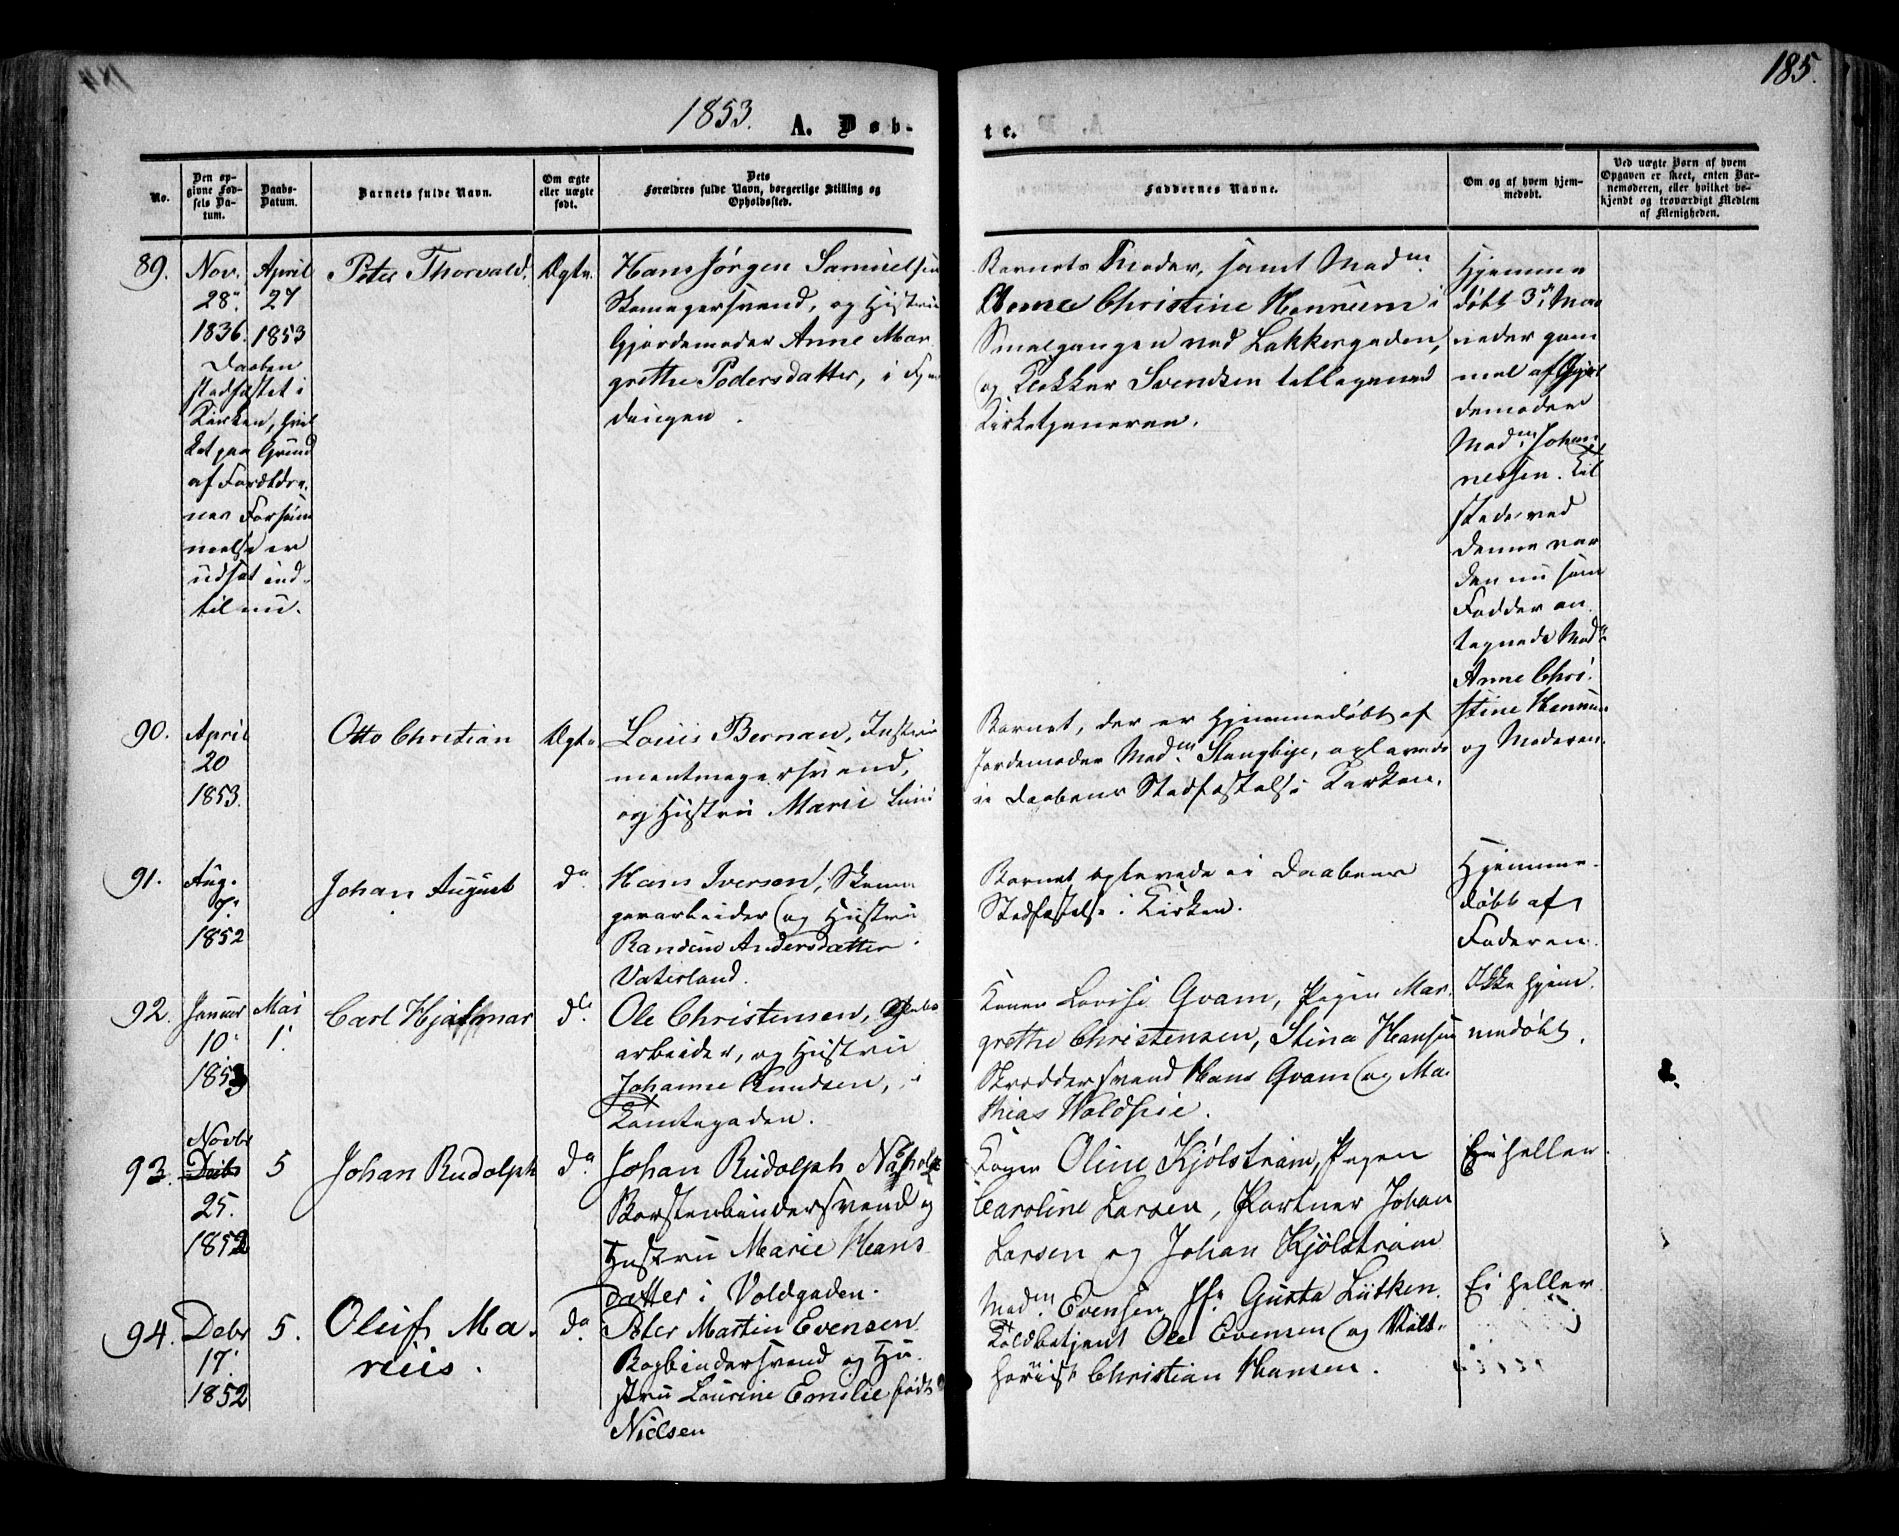 185.
1853. A. Døb-
te.
No.
Den op-
givne Fød-
sels Da-
tum.
Daabs-
Datum.
Barnets fulde Navn.
Om ægte
eller uægte
født.
Dets
Forældres fulde Navn, borgerlige Stilling og
Opholdssted.
Faddernes Navne.
Om og af hvem hjem-
medøbt.
Ved uægte Børn af hvem
Opgaven er skeet, enten Bar-
nemoderen, eller hvilket be-
kjendt og troværdigt Medlem
af Menigheden.
89.
Nov.
28
1836.
April
27
1853
Daaben
stadfæstet i
Kirken, hvil
ket paa Grund
af Forældre-
nes Forsøm
melse er
udsat ind-
til nu.
Peter Thorvald.
Ægte.
Hans Jørgen Samuelsen
Skomagersvend, og Hustrue
Gjordemoder Anne Mar
grethe Pedersdatter, i
Barnets Moder, samt Madm
Anne Christine Hennum i
Smalgangen ved Lakkergaden,
og Klokker Svendsen tilligemed
Kirketjeneren.
Hjemme
døbt 3 Maa
neder gam
mel af Gjor
demoder
Madm Johan
nessen. Til
stede ved
denne var
den nu som
Fadder an
tegnede Mad
Anne Chri-
stine Hennum
og Moderen.
90.
April
20
1853.
Otto Christian
Ægte
Louis Bernau, Instru
mentmagersvend,
og Hustru Marie
Barnet, der er hjemmedøbt af
Jordemoder Madm Stangbye, oplevede
ei Daabens Stadfæstelse i Kirken.
91.
Aug.
7.
1852
Johan August
do
Hans Iversen, Skoma
gerarbeider og Hustru
Andersdatter
Vaterland.
Barnet oplevede ei Daabens
Stadfæstelse i Kirken.
Hjemme-
døbt af
Faderen.
92.
Januar
10
1853
Mai
1.
Carl Hjalmar
do
Ole Christensen,
arbeider, og Hustru
Johanne Knudsen,
Konen Lovise Qvam, Pigen Mar-
grethe Christensen, Stina Hansen
Skræddersvend Hans Qvam og Ma-
thias
Ikke hjem
medøbt.
93.
Novbr
Decbr
25.
1852
5
Johan Rudolph
do
Johan Rudolph
Børstenbindersvend og
Hustru Marie Hans
datter i Voldgaden.
Oline Kjølstrøm, Pigen
Caroline Larsen, Portner Johan
Larsen og Johan Kjølstrøm
Ei heller.
94.
Debr
17.
1852
5.
Oluf Ma-
rius.
do
Peter Martin Evensen
Bogbindersvend og Hu-
stru Laurine Emilie født
Nielsen
Madm Evensen Jfr Gusta Lütken
Toldbetjent Ole Evensen og
Christian Hansen.
Ei heller